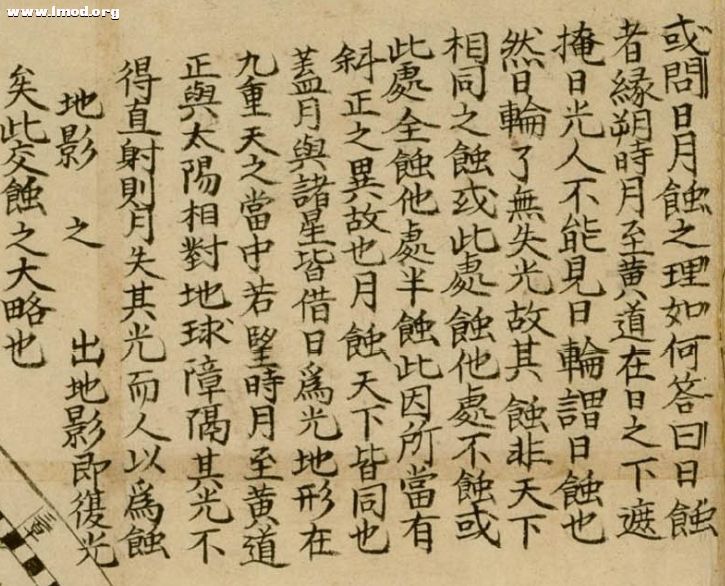 www.lmod.org
或問日月蝕之理如何答曰日蝕
者緣朔時月至黄道在日之下遮
掩日光人不能見日輪謂日蝕也
然日輪了無失光故其蝕非天下
相同之蝕或此處蝕他處不蝕或
此處全蝕他處半蝕此因所當有
斜正之異故也月蝕天下皆同也
蓋月與諸星皆借日爲光地形在
九重天之當中若望時月至黄道
正與太陽相對地球障隔其光不
得直射則月失其光而人以爲蝕
地影之出地影即復光
矣此交蝕之大略也